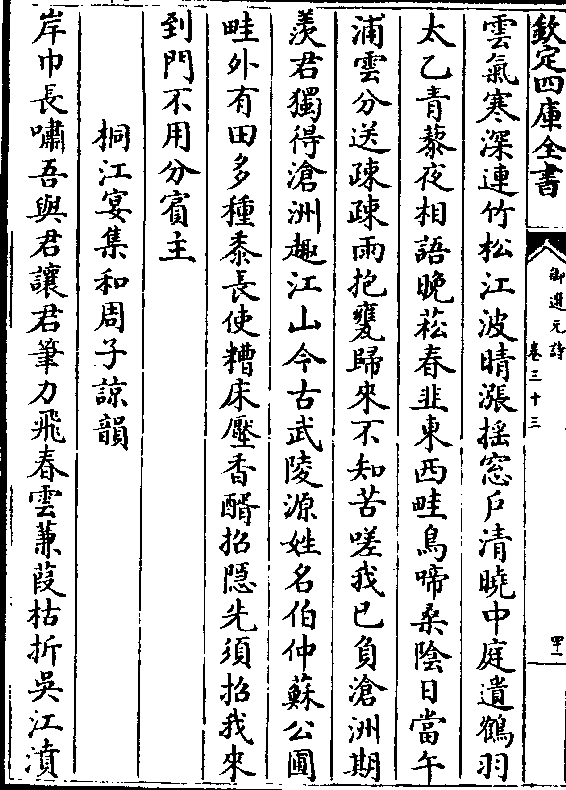 欽定四庫全書
御選元詩
卷三十三
雲氣寒深連竹松江波晴漲搖窓戶清曉中庭遺鶴羽
太乙青藜夜相語晚菘春韭東西畦鳥啼桑陰日當午
浦雲分送疎疎雨抱甕歸來不知苦嗟我已負滄洲期
羨君獨得滄洲趣江山今古武陵源姓名伯仲蘇公圃
畦外有田多種黍長使糟床壓香醑招隱先須招我來
到門不用分賓主
桐江宴集和周子諒韻
岸巾長嘯吾與君讓君筆力飛春雲蒹葭枯折吳江濆